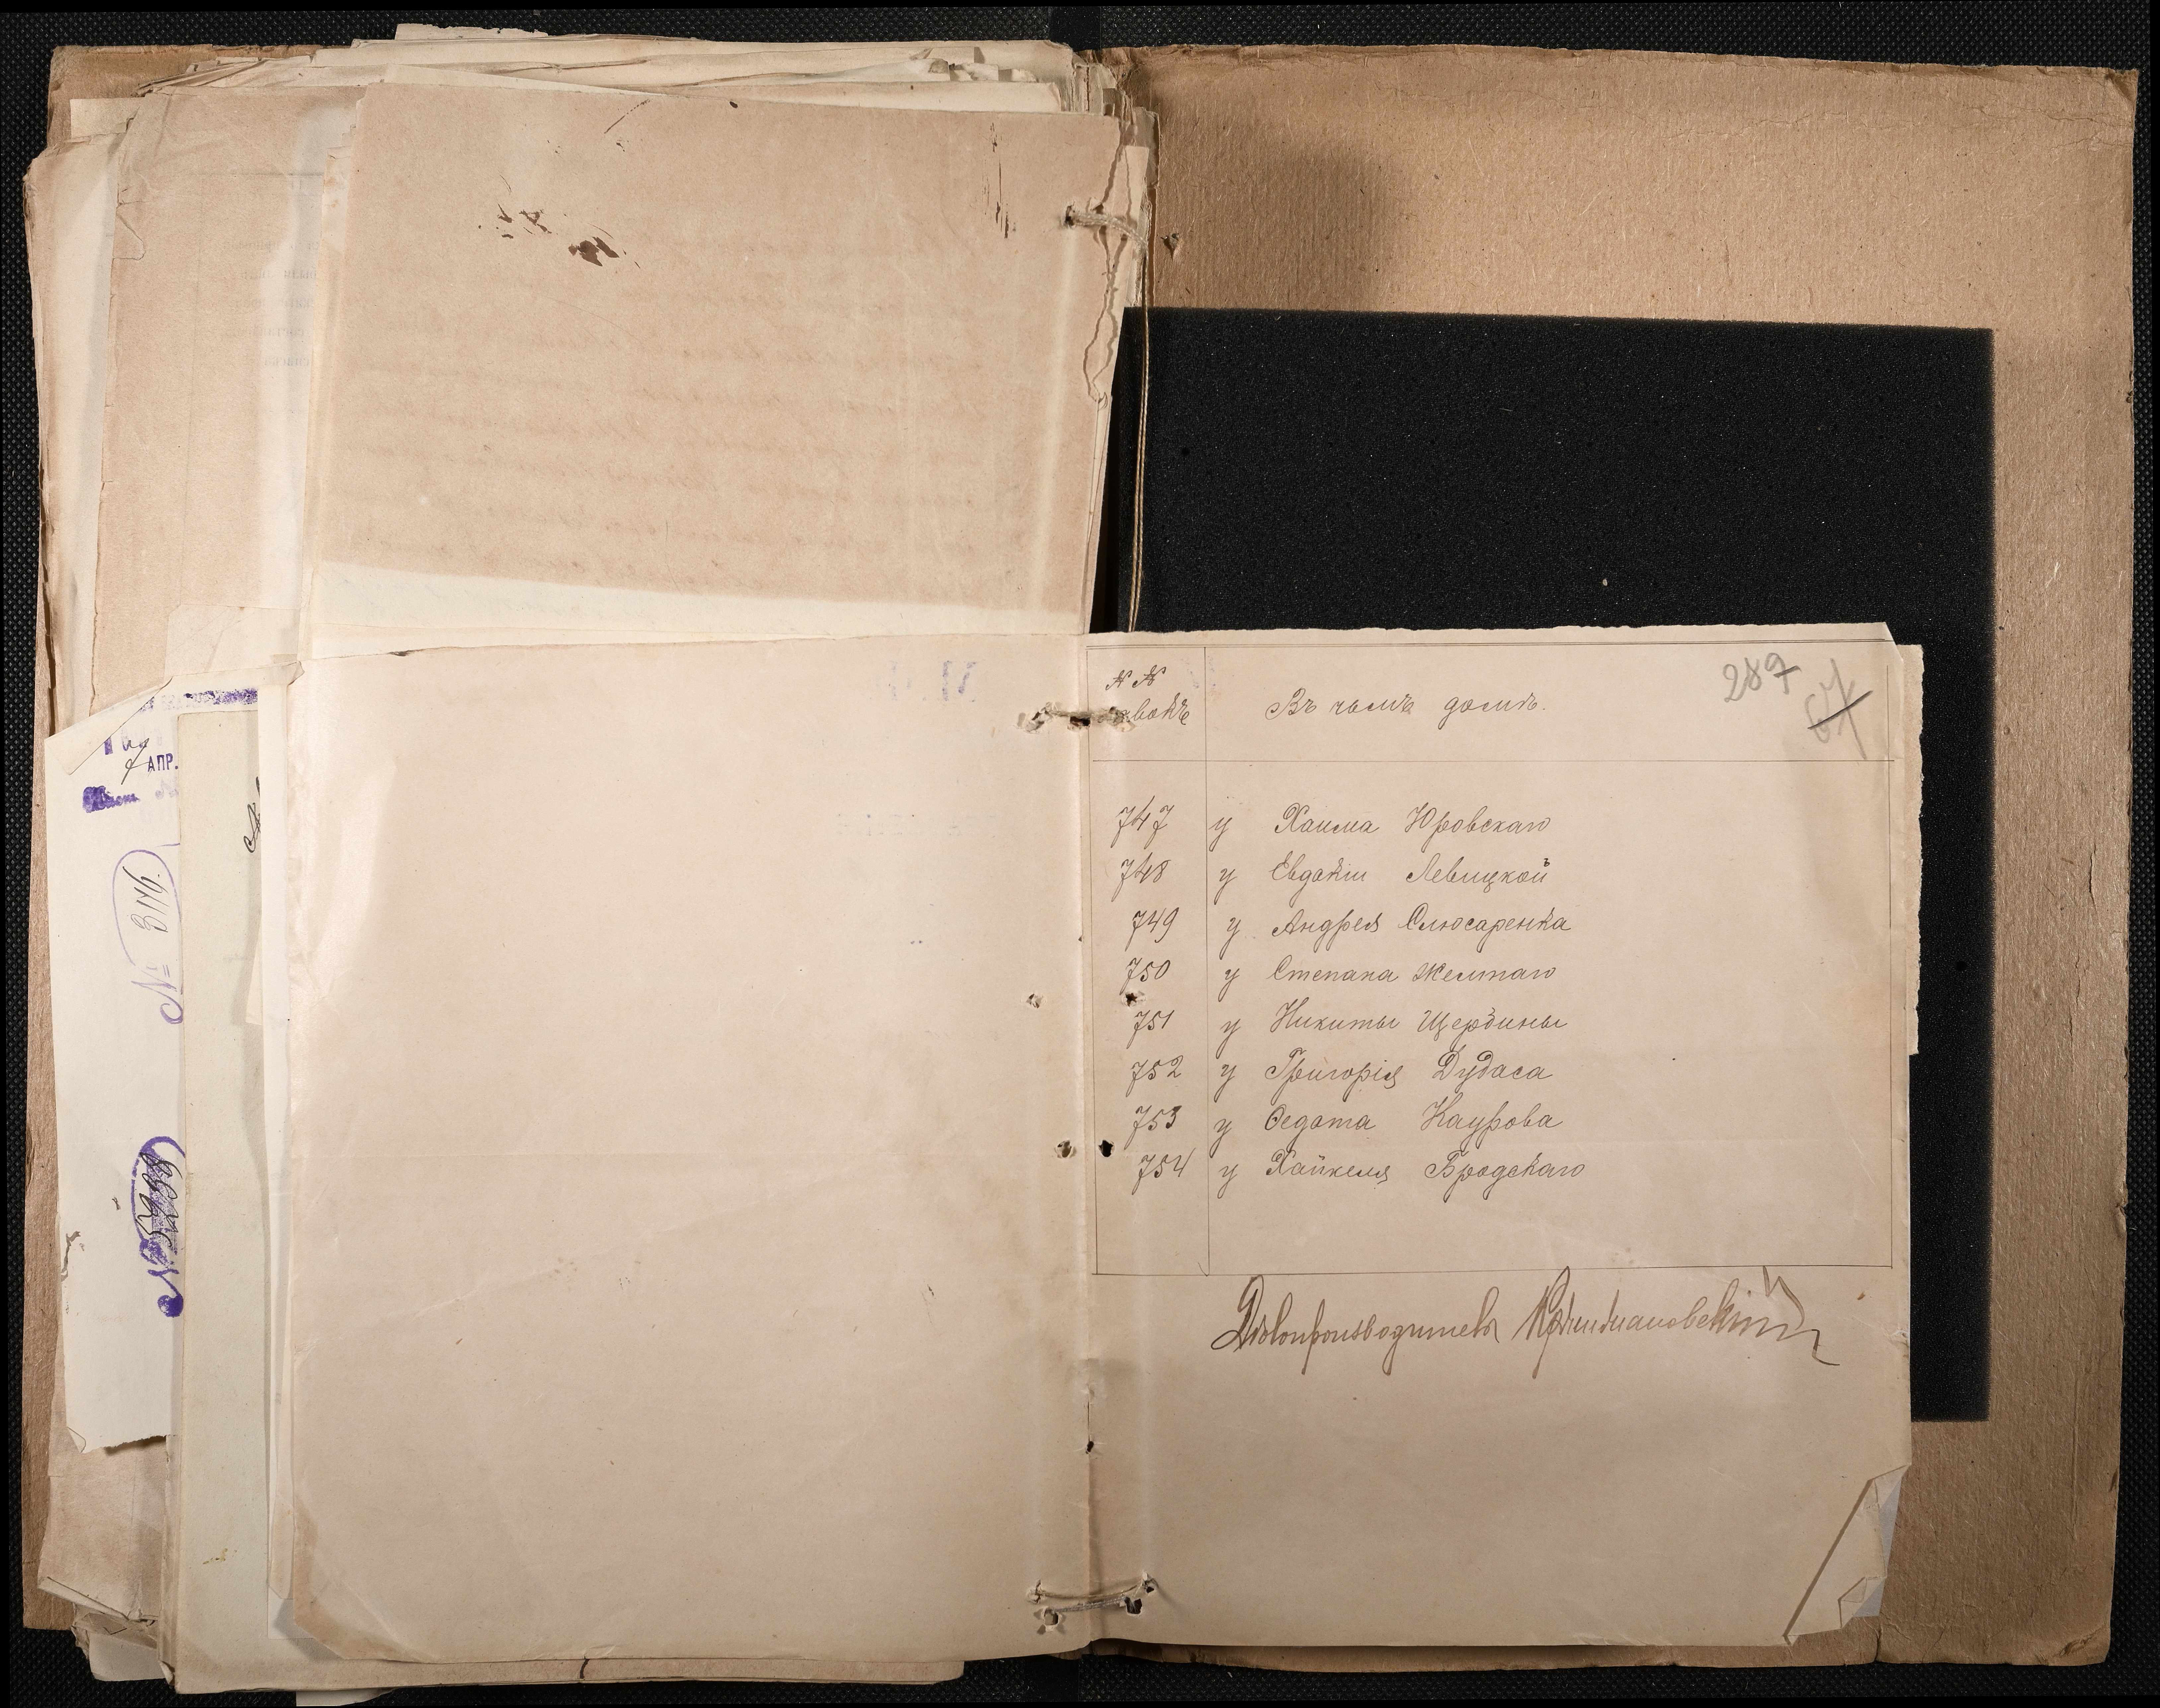 АПР.
№ 3116.
№ 5288
287
№ №
Въ чьемъ домѣ.
747 у Хаима Юровскаго
748 у Евдокіи Левицкой
749 у Андрея Слюсаренка
750 у Степана Желтаго
751 у Никиты Щербины
752 у Григорія Дудаса
753 у Федота Каурова
754 у Хайкеля Бродскаго
Дѣлопроизводитель